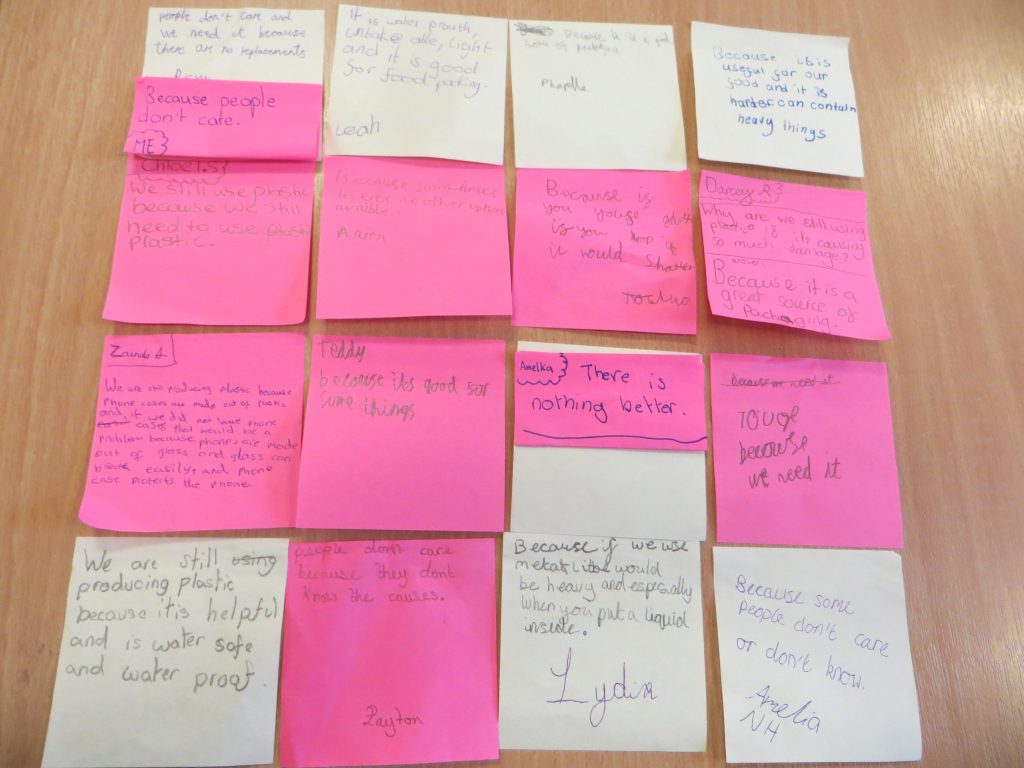 people don't care and
we need it because
there are no replacements
It is water prouth,
unbake able, light
and it is good
for food packing.
Leah
Because it is a good
some of packaging
Because it is
useful for our
food and it is
harder can contain
heavy things
Because people
don't care.
ME
Chloe T.S
We still use plastic
because we still
need to use plastic
plastic.
Because sometimes
no other options
Aaron
Because is
you youse
is you drop it
it would Shatter
Joshua
Darcey R
Why are we still using
plastic if its causing
so much damage?
answer:
Because it is a
great source of
Packaging.
Zainab A
We are still producing plastic because
Phone cases are made out of plastic
and if we did not have phone
cases that would be a
problem because phones are made
out of glass and glass can
break easily, and phone
case protects the phone.
Teddy
because its good for
some things
Amelka
There is
nothing better.
because we need it
because
we need it
We are still using
producing plastic
because it is helpful
and is water safe
and water proof.
people don't care
because they dont
know the causes.
Payton
Because if we use
metal it would
be heavy and espesally
when you put a liquid
inside.
Lydia
Because some
people don't care
or don't know.
Amelia
NH